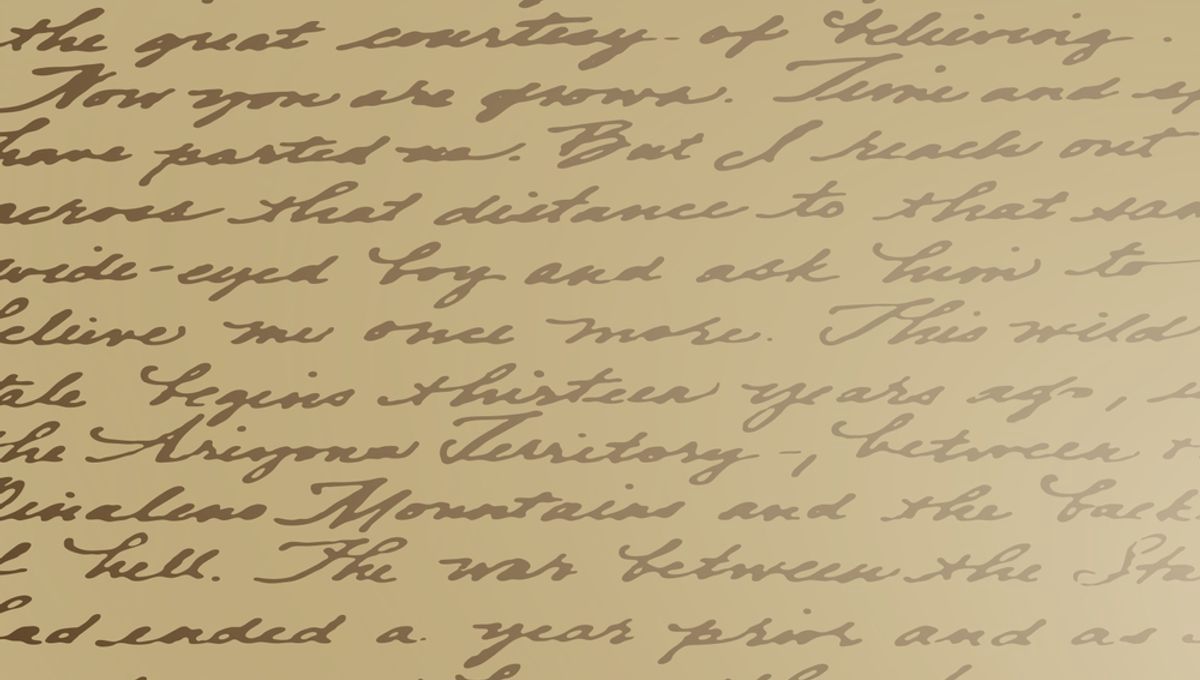 the great courtesy - of believing .
Now you are grown. Time and sp
have parted me. But I reach out
across that distance to that sam
wide-eyed boy and ask him to
believe me once more. This wild
tale begins thirteen years ago,
the Arizona Territory -, between
Pinaleno Mountains and the back
hell. The war between the Sta
had ended a year prior and as